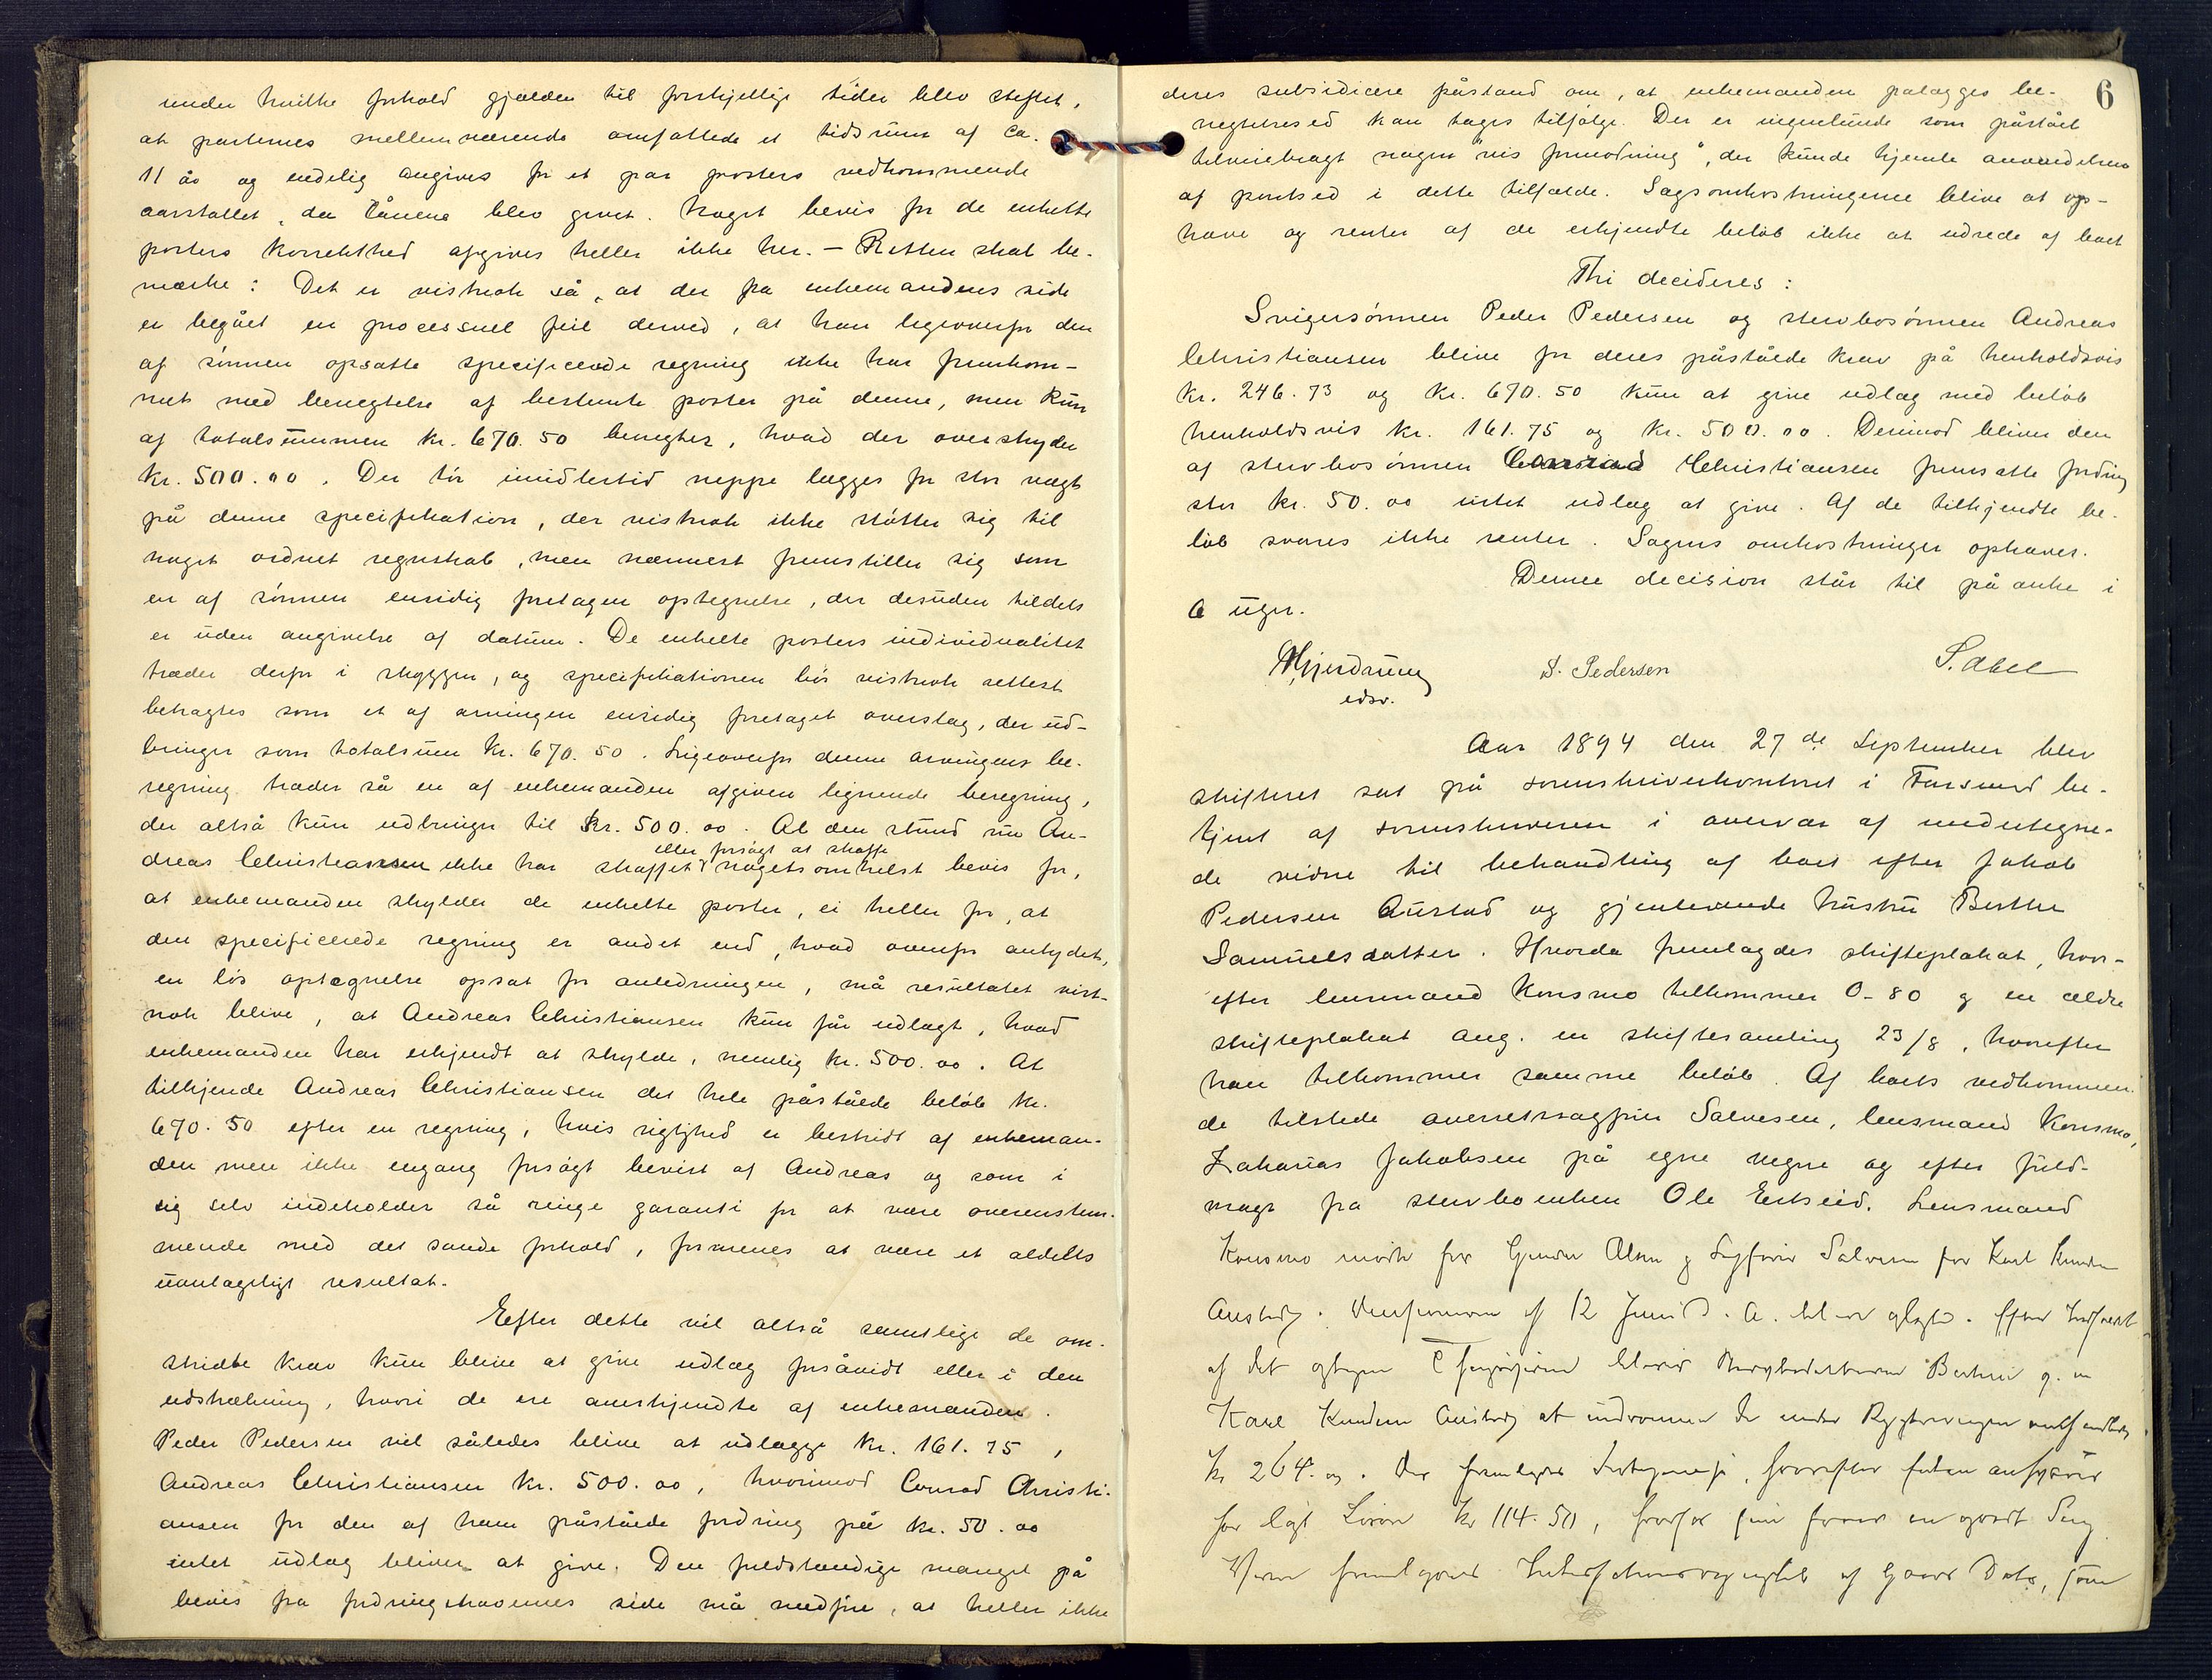 under hvilke forhold gjælden til forskjellige tider blev stiftet,
at parternes mellemværende omfattede et tidsrum af ca.
11 år og endelig angives for et par posters vedkommende
aarstallet, da lånene blev givet. Noget bevis for de enkelte
posters korrekthed afgives heller ikke her. – Retten skal be-
mærke: Det er vistnok så, at der fra enkemandens side
er begået en processuel feil derved, at han ligeoverfor den
af sønnen opsatte specificerede regning ikke har fremkom-
met med benegtelse af bestemte poster på denne, men kun
af totalsummen kr. 670.50 benegter, hvad der overskyder
kr. 500.00. Der tør imidlertid neppe lægges for stor vægt
på denne specifikation, der vistnok ikke støtter sig til
noget ordnet regnskab, men nærmest fremstiller sig som
en af sønnen ensidig foretagen optegnelse, der desuden tildels
er uden angivelse af datum. De enkelte posters individualitet
træder derfor i skyggen, og specifikationen bør vistnok rettest
betragtes som et af arvingen ensidig foretaget overslag, der ud-
bringer som totalsum kr. 670.50. Ligeoverfor denne arvingens be-
regning træder så en af enkemanden afgiven lignende beregning,
der altså kun udbringer til kr. 500.00. Al den stund nu An-
eller forsøgt at skaffe
dreas Christiansen ikke har skaffet nogetsomhelst bevis for,
at enkemanden skylder de enkelte poster, ei heller for, at
den specificerede regning er andet end, hvad ovenfor antydet,
en løs optegnelse opsat for anledningen, må resultatet vist-
nok blive, at Andreas Christiansen kun får udlagt, hvad
enkemanden har erkjendt at skylde, nemlig kr. 500.00. At
tilkjende Andreas Christiansen det hele påståede beløb kr.
670.50 efter en regning, hvis rigtighed er bestridt af enkeman-
den men ikke engang forsøgt bevist af Andreas og som i
sig selv indeholder så ringe garanti for at være overenstem-
mende med det sande forhold, formenes at være et aldeles
uantageligt resultat.
Efter dette vil altså samtlige de om-
stridte krav kun blive at give udlæg forsåvidt eller i den
udstrækning, hvori de ere anerkjendte af enkemanden.
Peder Pedersen vil således blive at udlægge kr. 161.75,
Andreas Christiansen kr. 500.00, hvorimod Conrad Christi-
ansen for den af ham påståede fordring på kr. 50.00
intet udlæg bliver at give. Den fuldstændige mangel på
bevis fra fordringshavernes side må medføre, at heller ikke
6
deres subsidiære påstand om, at enkemanden pålægges be-
negtelsesed kan tages tilfølge. Der er ingenlunde som påstået
tilveiebragt nogen "vis formodning", der kunde hjemle anvendelsen
af partsed i dette tilfælde. Sagsomkostningerne blive at op-
hæve og renter af de erkjendte beløb ikke at udrede af boet
Thi decideres:
Svigersønnen Peder Pedersen og stervbosønnen Andreas
Christiansen blive for deres påståede krav på henholdsvis
kr. 246.73 og kr. 670.50 kun at give udlæg med beløb
henholdsvis kr. 161.75 og kr. 500.00. Derimod bliver den
af stervbosønnen Conrad Christiansen fremsatte fordring
stor kr. 50.00 intet udlæg at give. Af de tilkjendte be-
løb svares ikke renter. Sagens omkostninger ophæves.
Denne decision står til på anke i
6 uger.
Hjerdrum S. Pedersen S. Abel
edsv.
Aar 1894 den 27de September blev
skifteret sat på sorenskriverkontoret i Farsund be-
tjent af sorenskriveren i overvær af undertegne-
de vidne til behandling af boet efter Jakob
Pedersen Austad og gjenlevende hustru Berthe
Samuelsdatter. Hvorda fremlagdes skifteplakat, hvor-
efter lensmand Konsmo tilkommer 0-80 og en ældre
skifteplakat ang. en skiftesamling 23/8, hvorefter
han tilkommer samme beløb. Af boets vedkommen-
de tilstede overretssagfører Salvesen, lensmand Konsmo,
Zakarias Jakobsen på egne vegne og efter fuld-
magt fra stervboenken Ole Eikeid. Lensmand
Konsmo mødte for Gunder Olsen og Sagfører Salvesen for Karl Knudsen
Austad. af 12 Juni d. A.
af det
Karl Knudsen Austad at
kr 264.00. Der fremlagdes
for kr 114.50,
fremlagdes af Gaars Dato, som